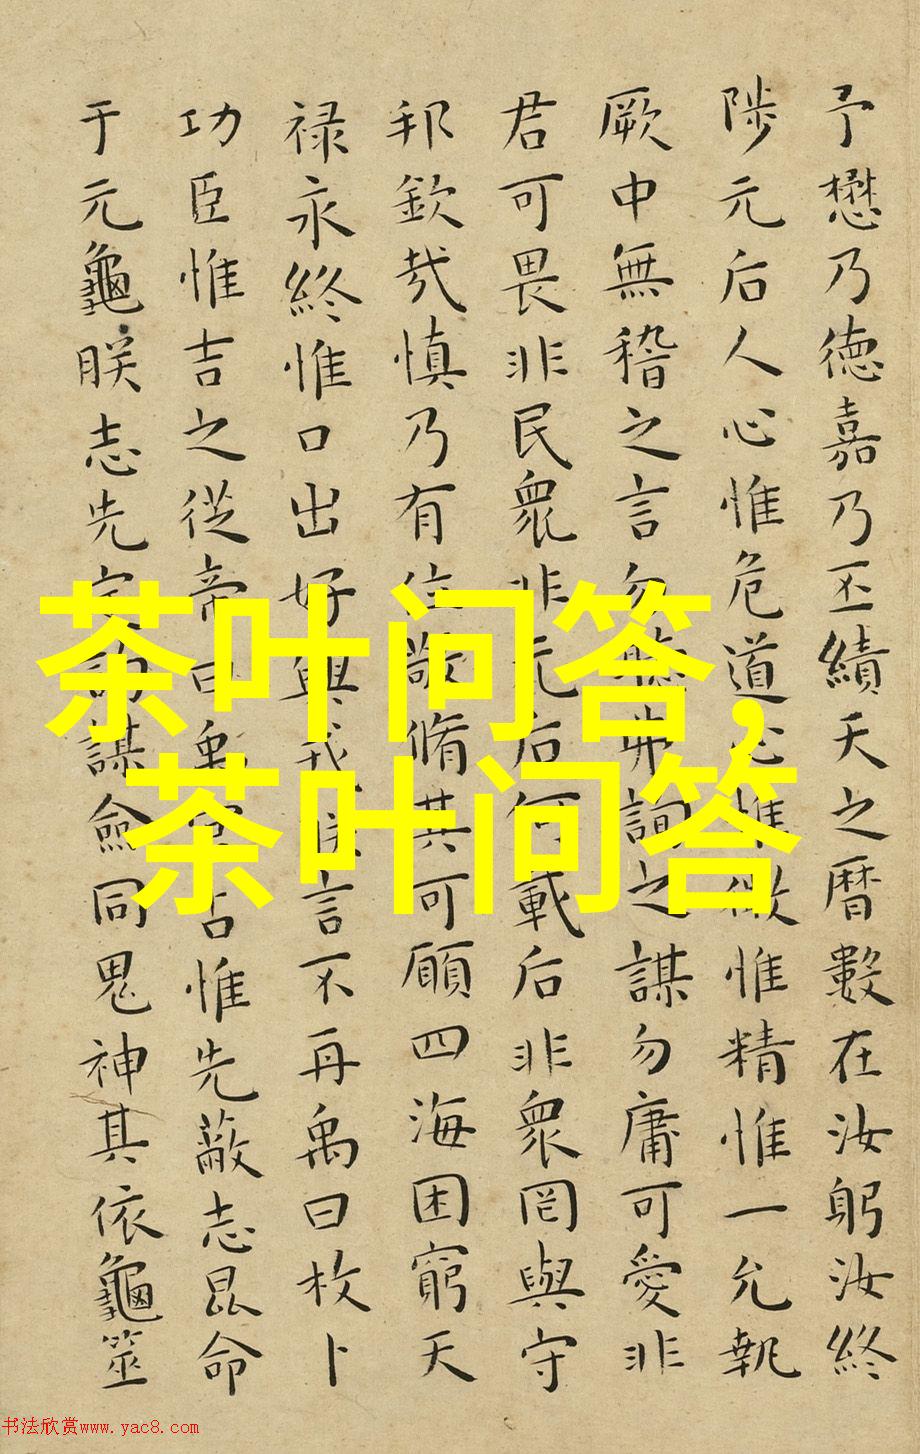 予懋乃德嘉乃丕績天之曆數在汝躬汝終
陟元后人心惟危道心惟微惟精惟一允執
厥中無稽之言勿聽弗詢之謀勿庸可愛非
君可畏非民眾非元后何戴后非眾罔與守
邦欽哉慎乃有位敬脩其可願四海困窮天
禄永終惟口出好興戎朕言不再禹曰枚卜
功臣惟吉之從帝曰禹官占惟先蔽志昆命
于元龜朕志先定詢謀僉同鬼神其依龜筮
茶叶问答,
茶叶问答
书法欣赏www.yac8.com